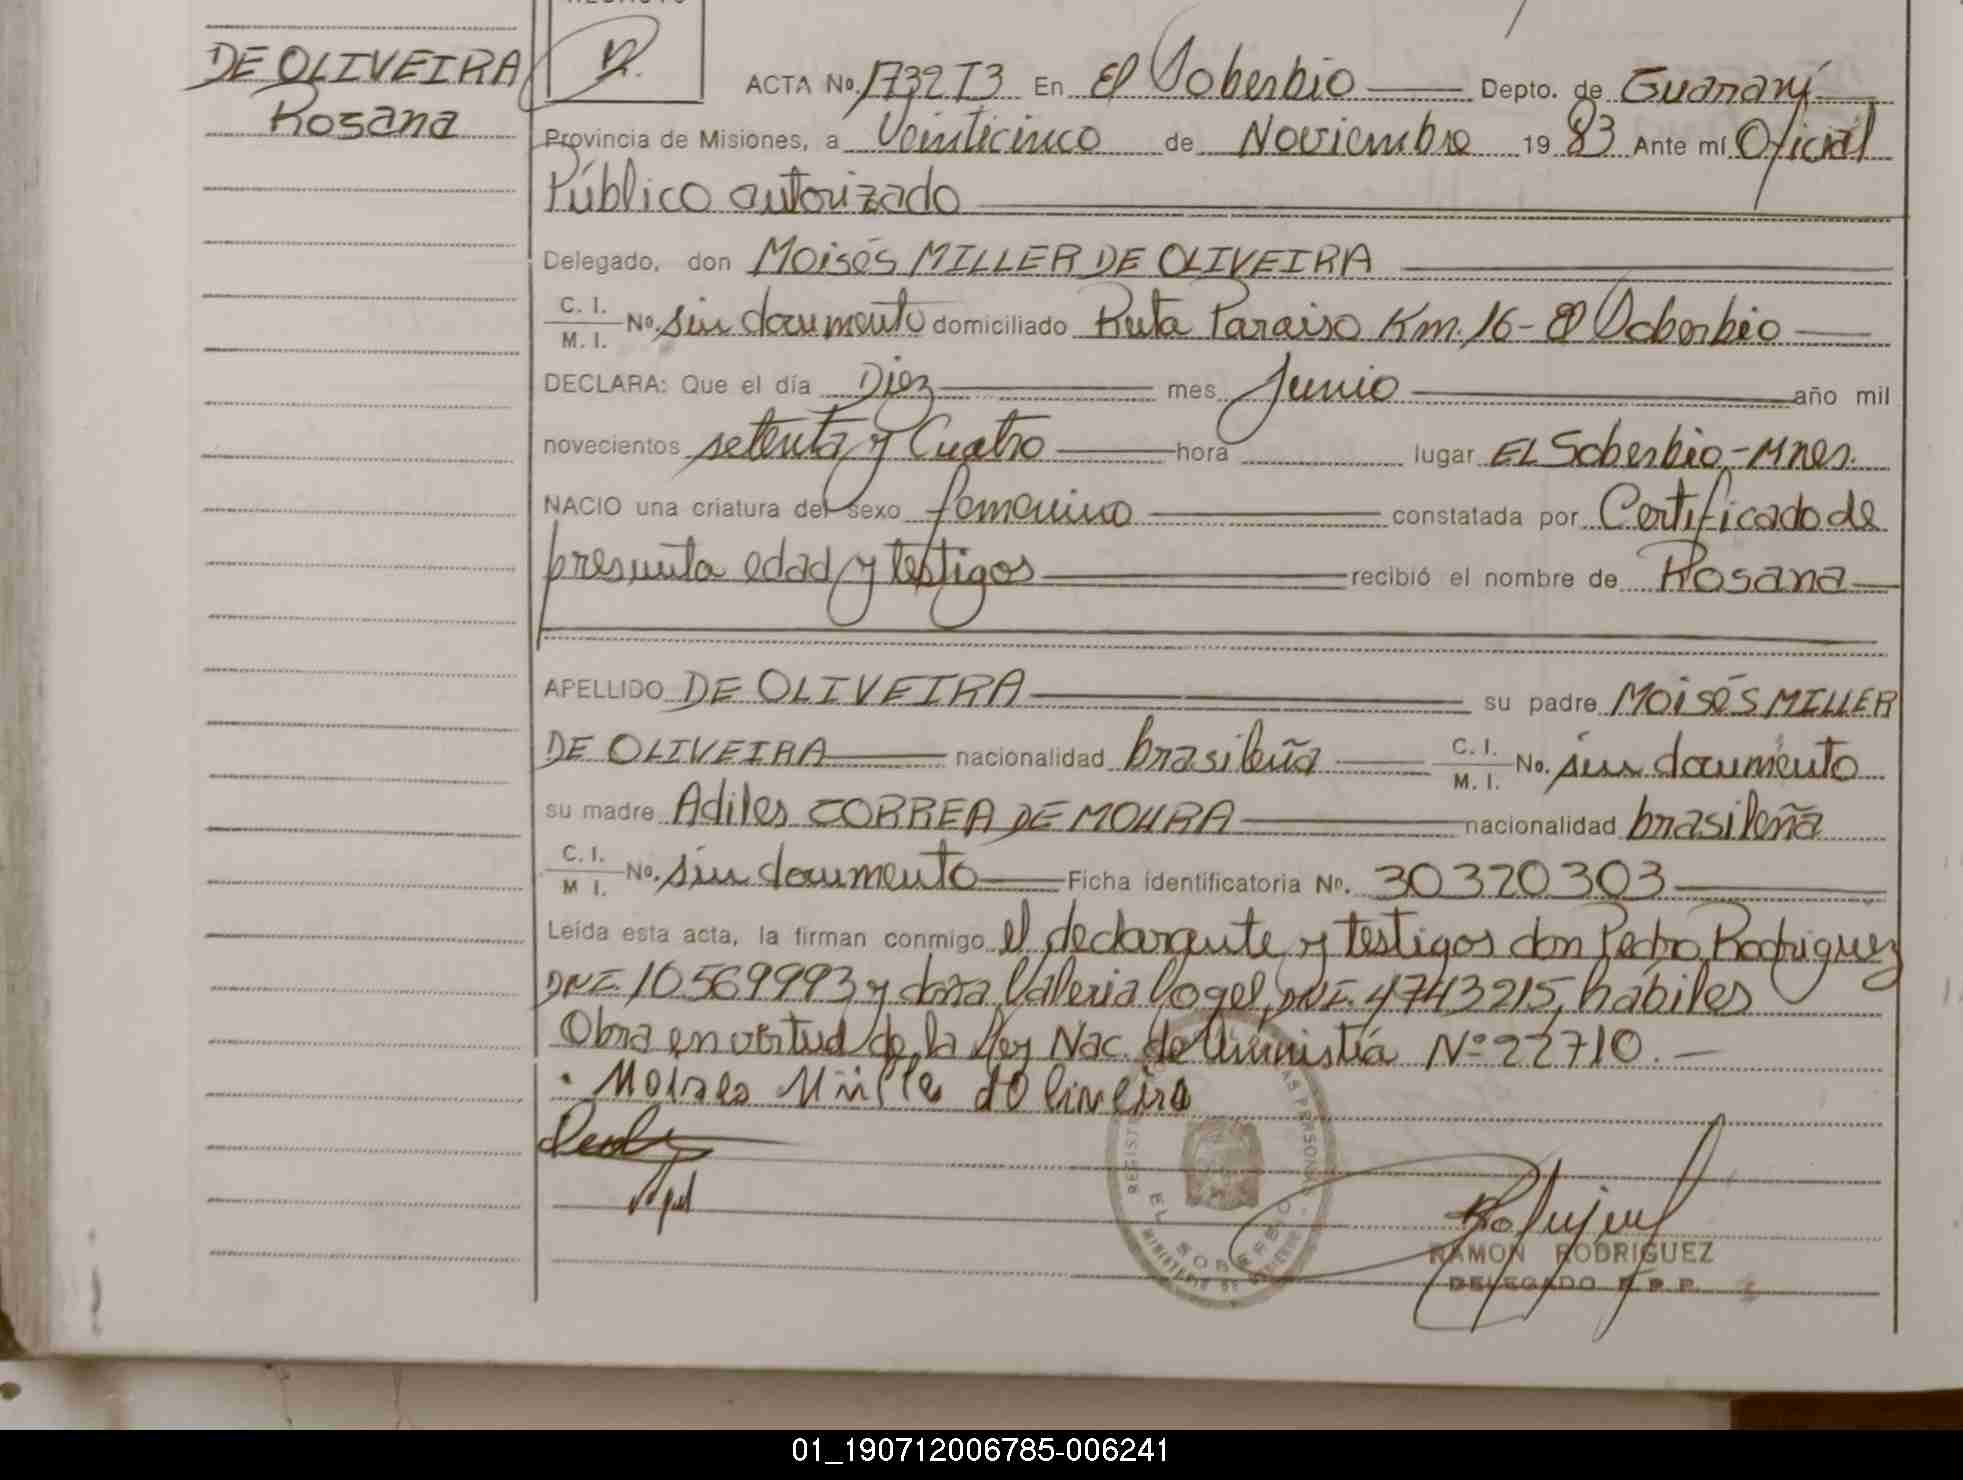 DE OLIVEIRA
Rosana
ACTA No. 1732 T3 En El Soberbio Depto. de Guaraní
Provincia de Misiones, a Veinticinco de Noviembre 1983 Ante mí Oficial
Público autorizado
Delegado, don Moisés MILLER DE OLIVEIRA
C. I. / M. I. No. sin documento domiciliado Ruta Paraiso Km. 16 - El Soberbio
DECLARA: Que el día Diez mes Junio año mil
novecientos setenta y Cuatro hora lugar EL Soberbio - Mnes.
NACIO una criatura del sexo femenino constatada por Certificado de
presunta edad y testigos recibió el nombre de Rosana
APELLIDO DE OLIVEIRA su padre MOISÉS MILLER
DE OLIVEIRA nacionalidad brasileña C. I. / M. I. No. sin documento
su madre Adiles CORREA DE MOURA nacionalidad brasileña
C. I. / M I. No. sin documento Ficha identificatoria No. 30320303
Leída esta acta, la firman conmigo el declarante y testigos don Pedro Rodriguez
DNI. 10569993 y doña Valeria Vogel, DNI. 4743215, hábiles
Obra en virtud de la Ley Nac. de Amnistía Nº 22710.
Moises Mille dOliveira
Vogel
REGISTRO PERSONAS
EL SOBERBIO
MINISTERIO DE
RAMON RODRIGUEZ
DELEGADO R. P. P.
01_190712006785-006241